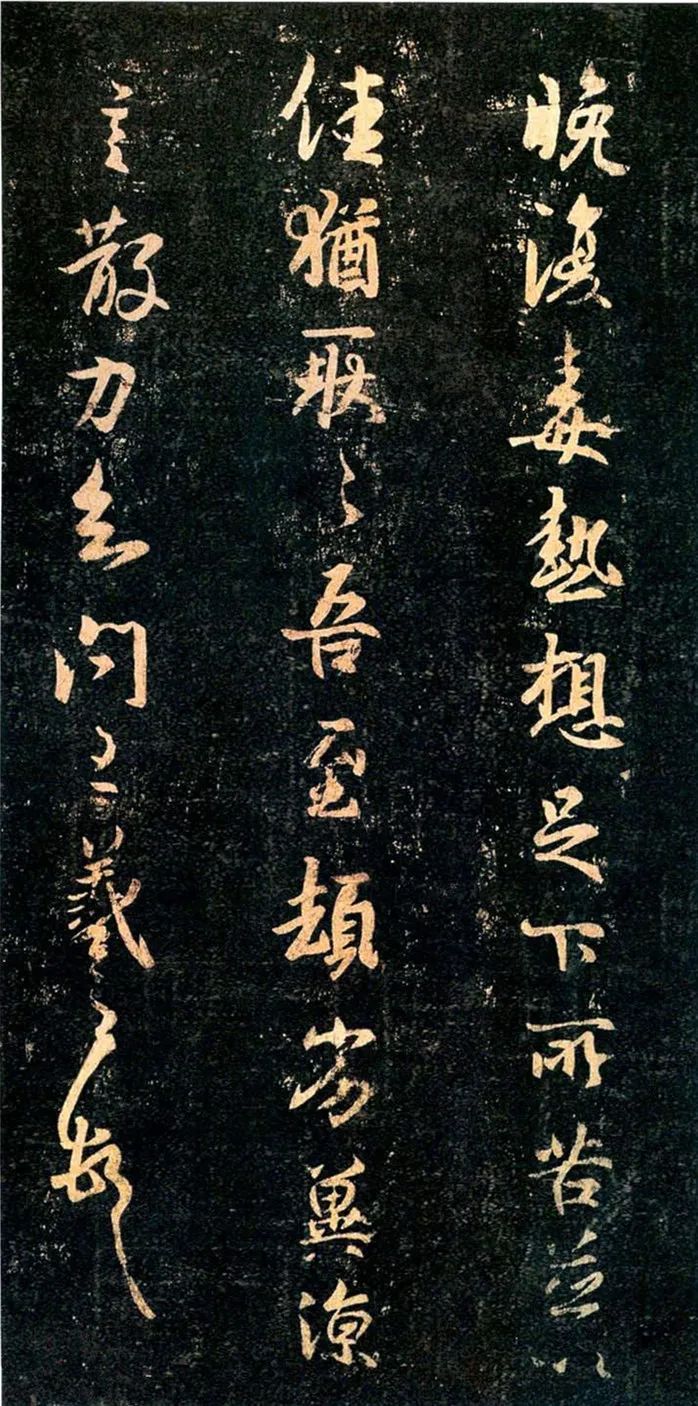 晚復毒熱想足下所苦並以
佳猶耿々吾至頓劣冀涼
言散力知問王羲之頓